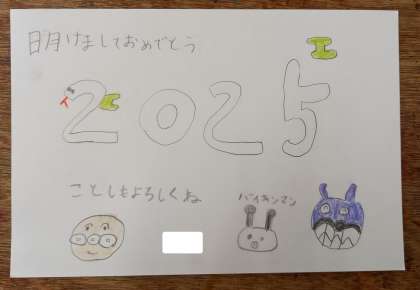 明けましておめでとう
エ
2025
ことしもよろしくね
バイキンマン